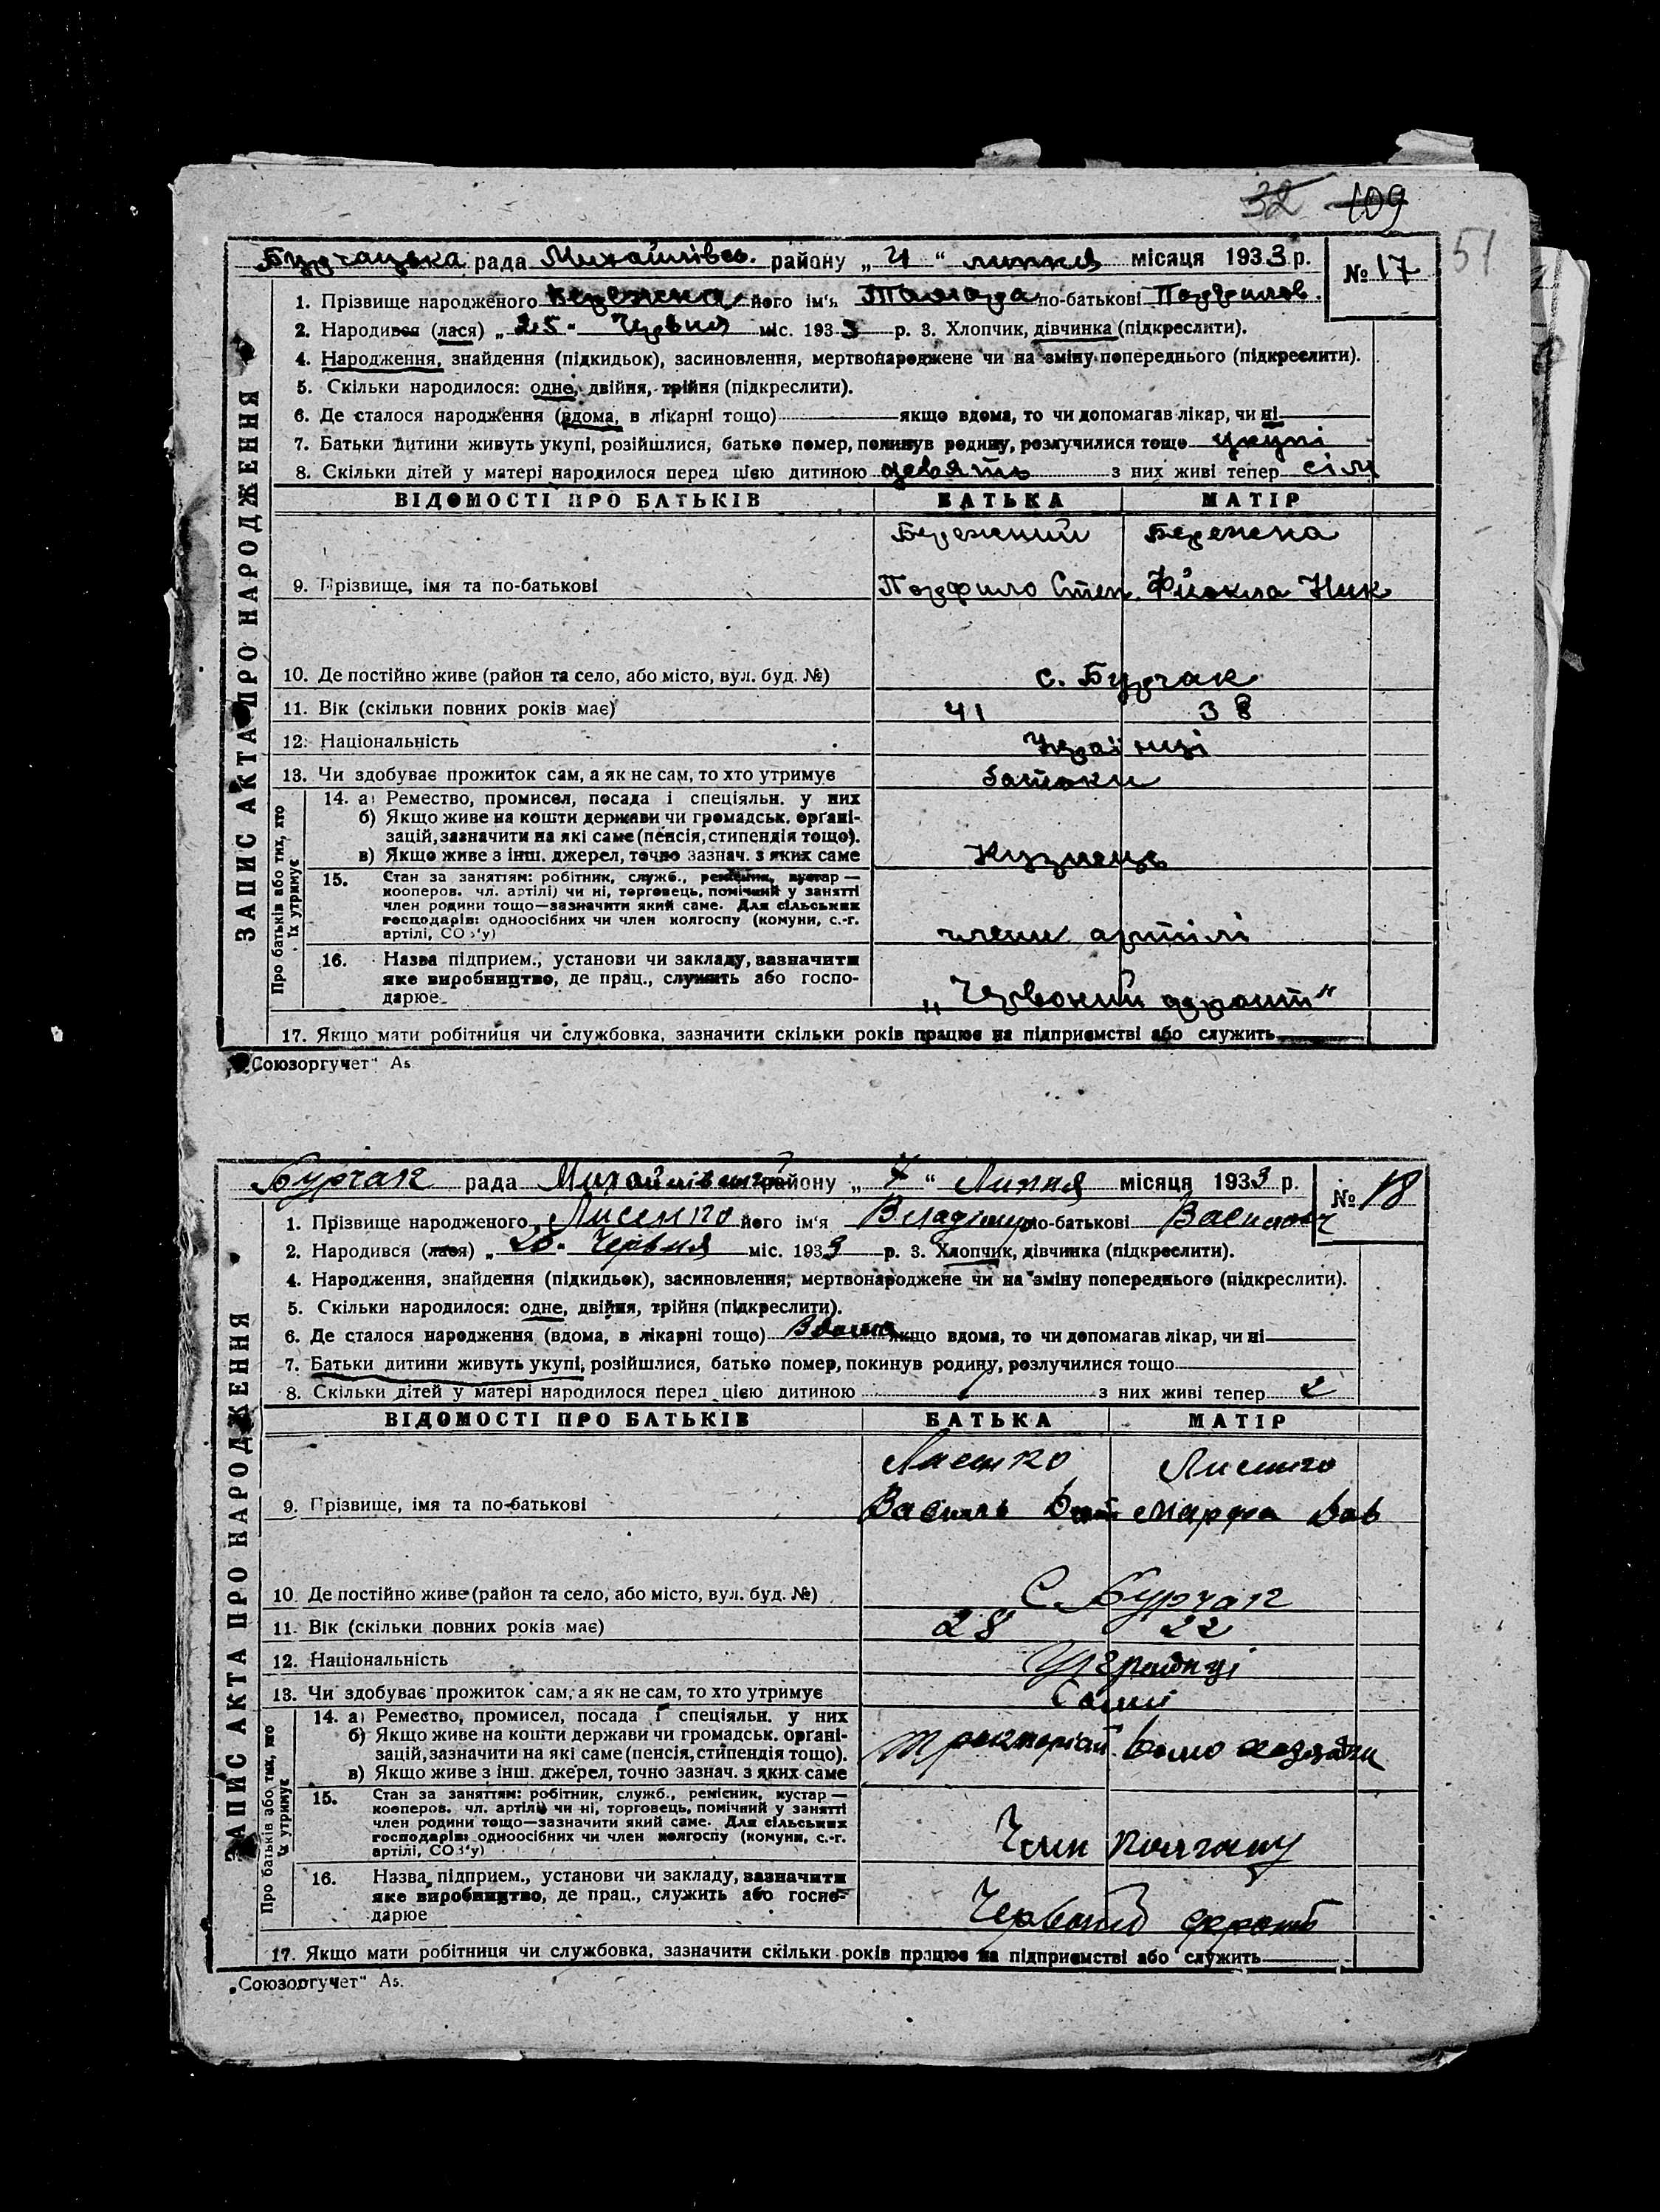 32 109
51
Бурчацька рада Михайлівсь. району „ 4 “ липня місяця 1933 р. № 17
1. Прізвище народженого Бережна його ім'я Тамара по-батькові Порфилов.
2. Народився (лася) „ 25 " Червня міс. 1933 р. 3. Хлопчик, дівчинка (підкреслити).
4. Народження, знайдення (підкидьок), засиновлення, мертвонароджене чи на зміну попереднього (підкреслити).
5. Скільки народилося: одне, двійня, трійня (підкреслити).
6. Де сталося народження (вдома, в лікарні тощо) якщо вдома, то чи допомагав лікар, чи ні
7. Батьки дитини живуть укупі, розійшлися, батько помер, покинув родину, розлучилися тощо укупі
8. Скільки дітей у матері народилося перед цією дитиною девять з них живі тепер сім
ВІДОМОСТІ ПРО БАТЬКІВ БАТЬКА МАТІР
Бережний Бережна
9. Прізвище, імя та по-батькові Порфило Степ. Фйокла Ник
10. Де постійно живе (район та село, або місто, вул. буд. №) с. Бурчак
11. Вік (скільки повних років має) 41 38
12. Національність Украї нці
13. Чи здобуває прожиток сам, а як не сам, то хто утримує батьки
14. а) Ремество, промисел, посада і спеціяльн. у них
б) Якщо живе на кошти держави чи громадськ. органі-
зацій, зазначити на які саме (пенсія, стипендія тощо).
в) Якщо живе з інш. джерел, точно зазнач. з яких саме Кузнець
15. Стан за заняттям: робітник, служб., ремісник, кустар —
кооперов. чл. артілі) чи ні, торговець, помічний у занятті
член родини тощо—зазначити який саме. Для сільських
господарів: одноосібних чи член колгоспу (комуни, с.-г.
артілі, СОЗ'у) члени артілі
16. Назва підприєм., установи чи закладу, зазначити
яке виробництво, де прац., служить або госпо-
дарює „Червоний фронт"
17. Якщо мати робітниця чи службовка, зазначити скільки років працює на підприємстві або служить
ЗАПИС АКТА ПРО НАРОДЖЕННЯ
Про батьків або тих, хто
їх утримує
„Союзоргучет" As
Бурчак рада Михайлівський району „ 7 “ Липня місяця 1933 р. № 18
1. Прізвище народженого Лисенко його ім'я Владімир по-батькові Васильович
2. Народився (лася) „ 26 " Червня міс. 1933 р. 3. Хлопчик, дівчинка (підкреслити).
4. Народження, знайдення (підкидьок), засиновлення, мертвонароджене чи на зміну попереднього (підкреслити).
5. Скільки народилося: одне, двійня, трійня (підкреслити).
6. Де сталося народження (вдома, в лікарні тощо) Вдома якщо вдома, то чи допомагав лікар, чи ні
7. Батьки дитини живуть укупі, розійшлися, батько помер, покинув родину, розлучилися тощо
8. Скільки дітей у матері народилося перед цією дитиною з них живі тепер 2
ВІДОМОСТІ ПРО БАТЬКІВ БАТЬКА МАТІР
Лисенко Лисенко
9. Прізвище, імя та по-батькові Василь Марфа
10. Де постійно живе (район та село, або місто, вул. буд. №) С. Бурчак
11. Вік (скільки повних років має) 28 22
12. Національність Українці
13. Чи здобуває прожиток сам, а як не сам, то хто утримує Самі
14. а) Ремество, промисел, посада і спеціяльн. у них
б) Якщо живе на кошти держави чи громадськ. органі-
зацій, зазначити на які саме (пенсія, стипендія тощо).
в) Якщо живе з інш. джерел, точно зазнач. з яких саме
15. Стан за заняттям: робітник, служб., ремісник, кустар —
кооперов. чл. артілі) чи ні, торговець, помічний у занятті
член родини тощо—зазначити який саме. Для сільських
господарів: одноосібних чи член колгоспу (комуни, с.-г.
артілі, СОЗ'у) Член колгоспу
16. Назва підприєм., установи чи закладу, зазначити
яке виробництво, де прац., служить або госпо-
дарює Червоний фронт
17. Якщо мати робітниця чи службовка, зазначити скільки років працює на підприємстві або служить
ЗАПИС АКТА ПРО НАРОДЖЕННЯ
Про батьків або тих, хто
їх утримує
„Союзоргучет" As.